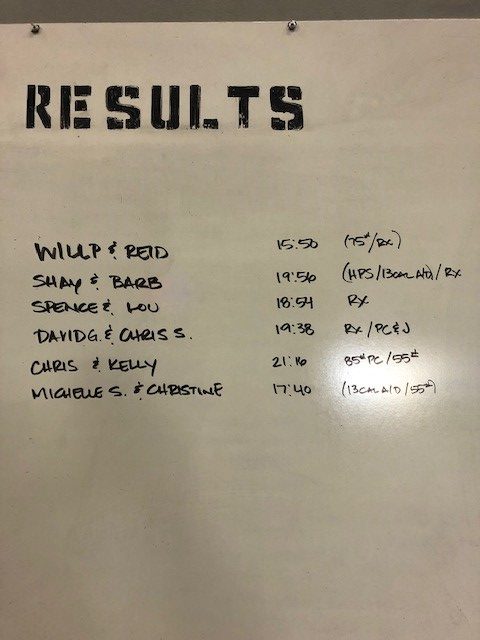 RESULTS
WILL P & REID 15:50 (75#/RX)
SHAY & BARB 19:56 (HPS/13CAL A/D)/RX
SPENCE & LOU 18:54 RX
DAVID G. & CHRIS S. 19:38 RX/PC&J
CHRIS & KELLY 21:16 85# PC/55#
MICHELLE S. & CHRISTINE 17:40 (13CAL A/D/55#)